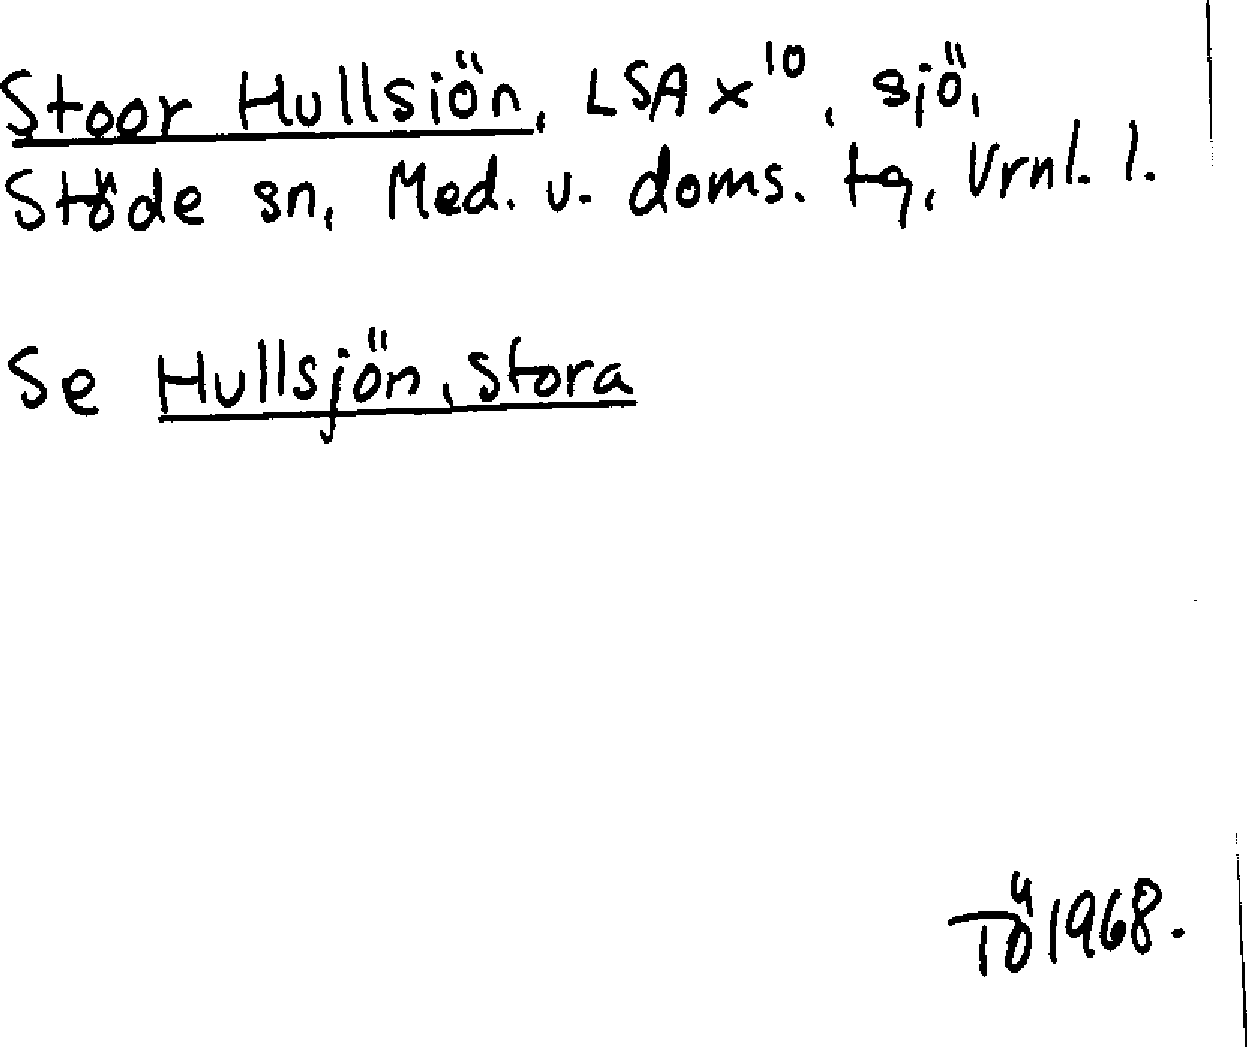 Stoor Hullsiön, LSA x¹⁰, sjö,
Stöde sn, Med. u. doms. tg, Vrnl. l.
Se Hullsjön, Stora
TÖ 1968.